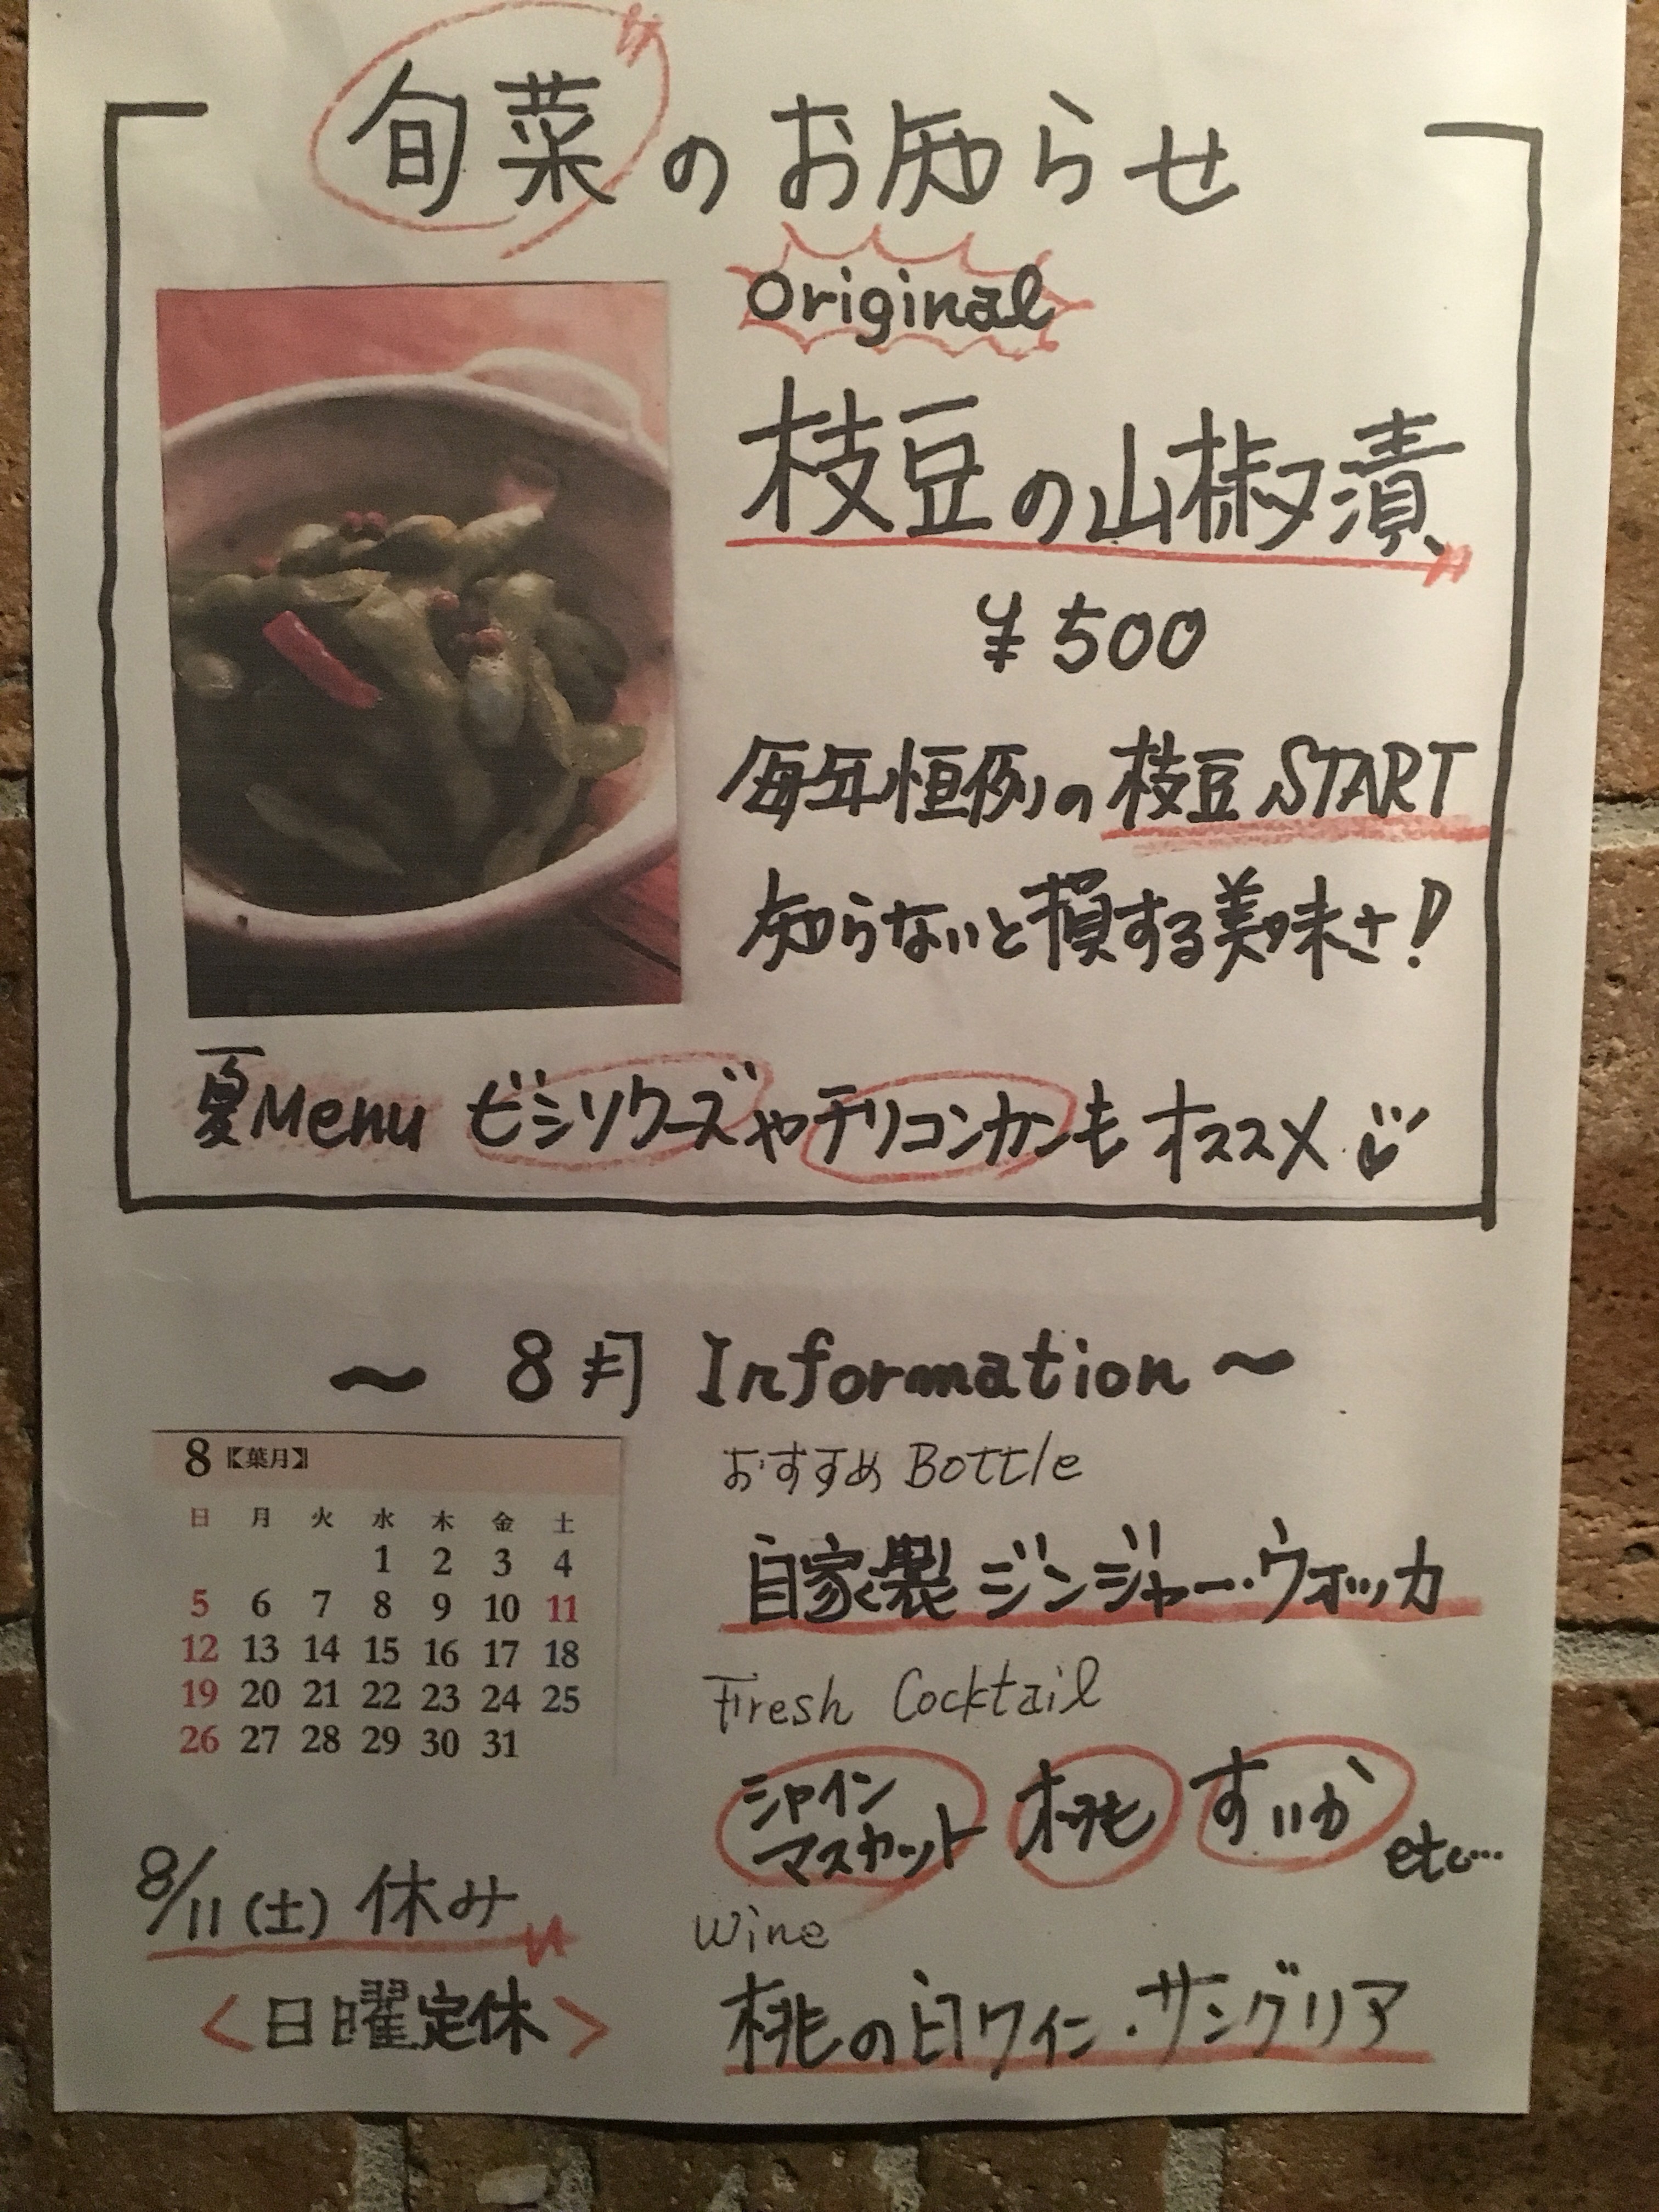 旬菜のお知らせ
Original
枝豆の山椒漬
¥500
毎年恒例の枝豆START
知らないと損する美味さ!
夏Menu ビシソワーズやチリコンカンもオススメ
~ 8月 Information ~
8 【葉月】
日 月 火 水 木 金 土
1 2 3 4
5 6 7 8 9 10 11
12 13 14 15 16 17 18
19 20 21 22 23 24 25
26 27 28 29 30 31
8/11(土) 休み
<日曜定休>
おすすめ Bottle
自家製 ジンジャー・ウォッカ
Fresh Cocktail
シャイン
マスカット 桃 すいか etc…
Wine
桃の白ワイン・サングリア